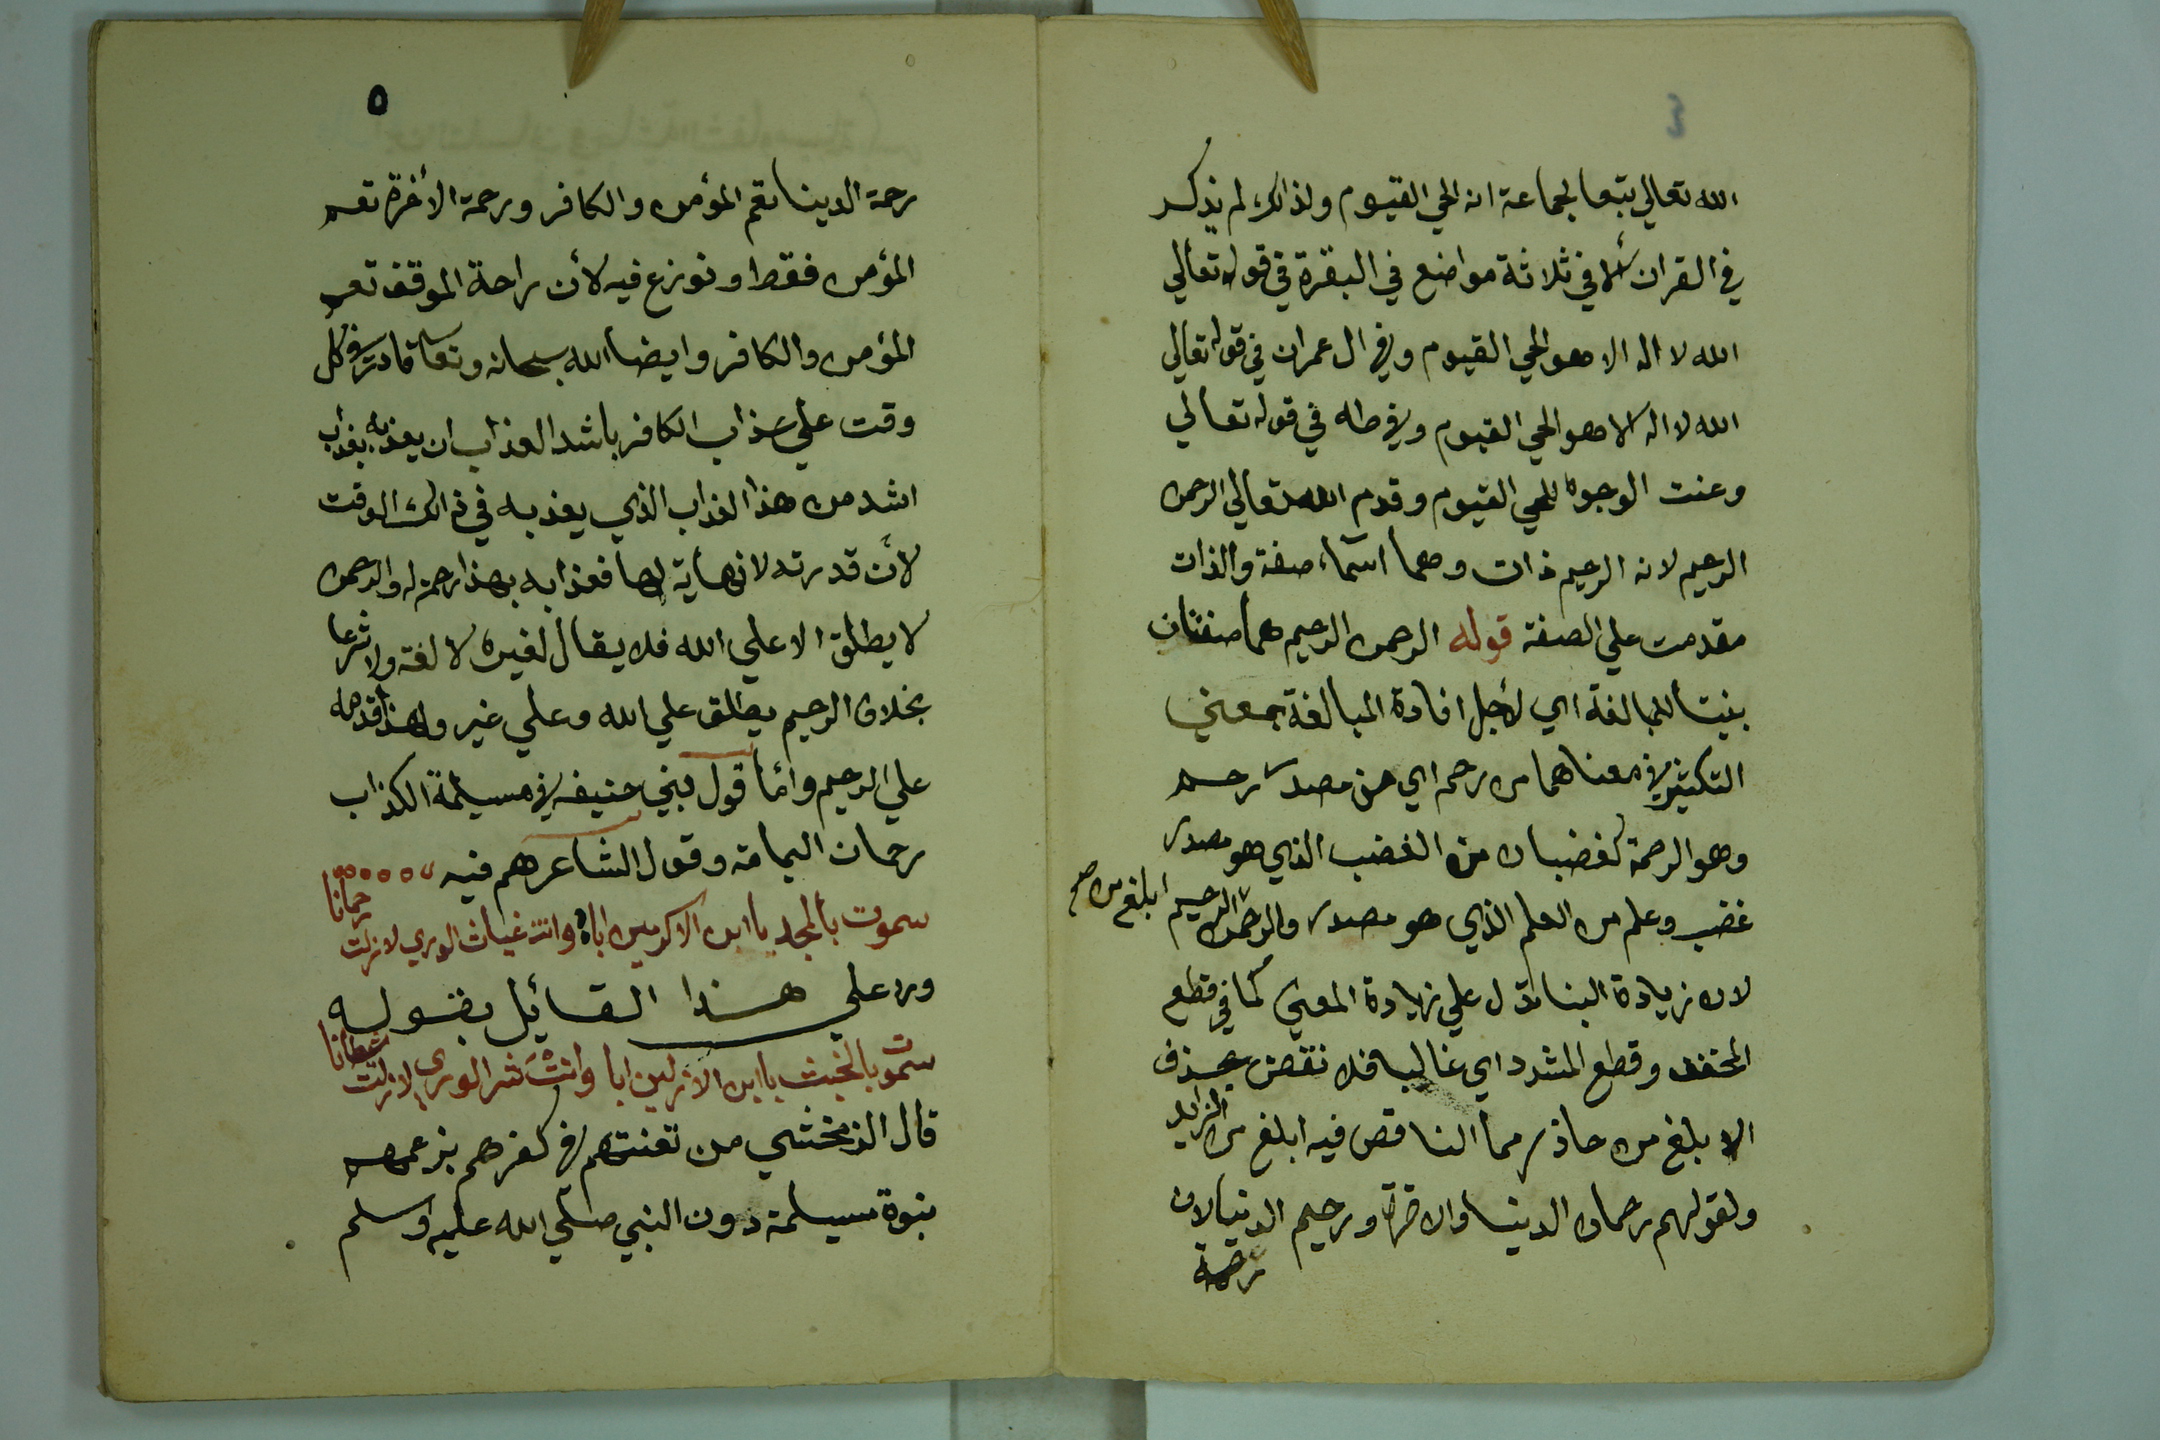 ٤
الله تعالي تبعا لجماعة انه الحي القيوم ولذالك لم يذكر
في القران الا في ثلاثة مواضع في البقرة في قوله تعالي
الله لا اله الا هو الحي القيوم وفي ال عمران في قوله تعالي
الله لا اله الا هو الحي القيوم وفي طه في قوله تعالي
وعنت الوجوه للحي القيوم وقدم الله تعالي الرحمن
الرحيم لانه الرحيم ذات وهما اسماء صفة والذات
مقدمت علي الصفة قوله الرحمن الرحيم هما صفتان
بنيتا للمبالغة اي لأجل افادة المبالغة بمعني
التكثير في معناهما من رحم اي من مصدر رحم
وهو الرحمة كغضبان من الغضب الذي هو مصدر
غضب وعلم من العلم الذي هو مصدر والرحمن ابلغ من صح
الرحيم
لان زيادة البنا تدل علي زيادة المعني كما في قطع
المخفف وقطع المشدد اي غالبا فلا نقض بحذف
الا بلغ من حاذر مما الناقص فيه ابلغ من الزايد
ولقولهم رحمان الدينا والاخرة ورحيم الدنيا لان
رحمة
٥
رحمة الدينا تعم المؤمن والكافر ورحمة الأخرة تعم
المؤمن فقط ونوزع فيه لأن راحة الموقف تعم
المؤمن والكافر وايضا الله سبحانه وتعا قادر في كل
وقت علي عذاب الكافر باشد العذاب ان يعذبه بعذاب
اشد من هذا العذاب الذي يعذبه في ذالك الوقت
لأن قدرته لا نهاية لها فعذابه بهذا رحمة له والرحمن
لا يطلق الا علي الله فلا يقال لغيره لا لغة ولا شرعا
بخلاف الرحيم يطلق علي الله وعلي غير ولهذا قدمه
علي الرحيم وائما قول بني حنيفه في مسيلمة الكذاب
رحمان اليمامة وقول الشاعرهم فيه
سموت بالمجد يا ابن الاكرمين ابا وانت غياث الوري لا زلت رحمانا
ورد علي هذا القائيل بقوله
سموت بالخبث يا ابن الارزلين ابا وانت شر الوري لا زلت شيطانا
قال الزمخشي من تعنتهم في كفرهم بزعمهم
نبوة مسيلمة دون النبي صلي الله عليه وسلم